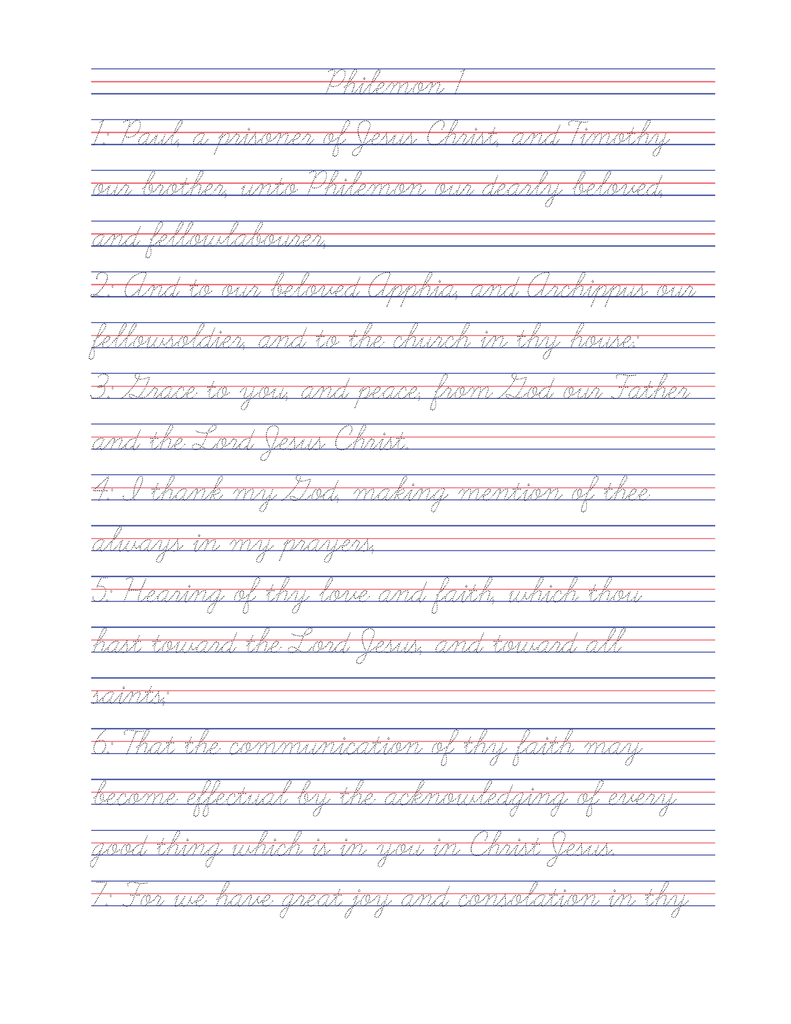 Philemon 1
1: Paul, a prisoner of Jesus Christ, and Timothy
our brother, unto Philemon our dearly beloved,
and fellowlabourer,
2: And to our beloved Apphia, and Archippus our
fellowsoldier, and to the church in thy house:
3: Grace to you, and peace, from God our Father
and the Lord Jesus Christ.
4: I thank my God, making mention of thee
always in my prayers,
5: Hearing of thy love and faith, which thou
hast toward the Lord Jesus, and toward all
saints;
6: That the communication of thy faith may
become effectual by the acknowledging of every
good thing which is in you in Christ Jesus.
7: For we have great joy and consolation in thy